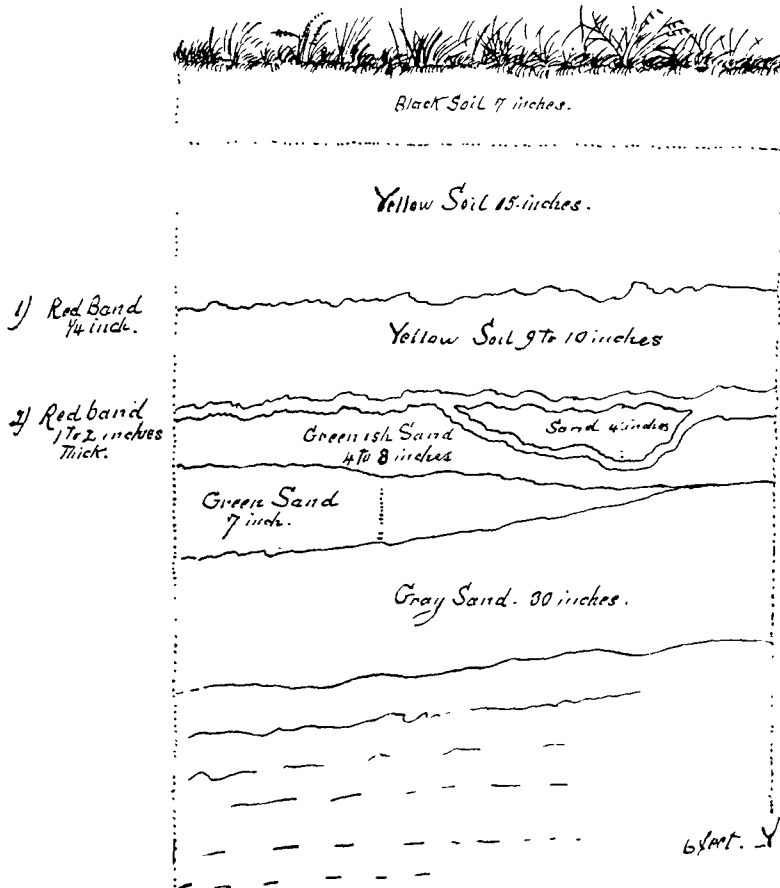 Black Soil 7 inches.
Yellow Soil 15 inches.
1) Red Band
1/4 inch.
Yellow Soil 9 to 10 inches
2) Red band
1 to 2 inches
Thick.
Greenish Sand
4 to 8 inches
Sand 4 inches
Green Sand
7 inch.
Gray Sand. 30 inches.
6 feet. Y